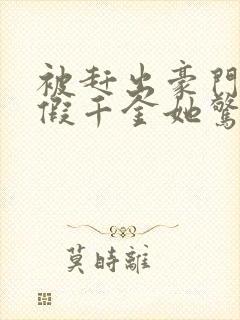 被赶出豪門
假千金她驚
莫時離